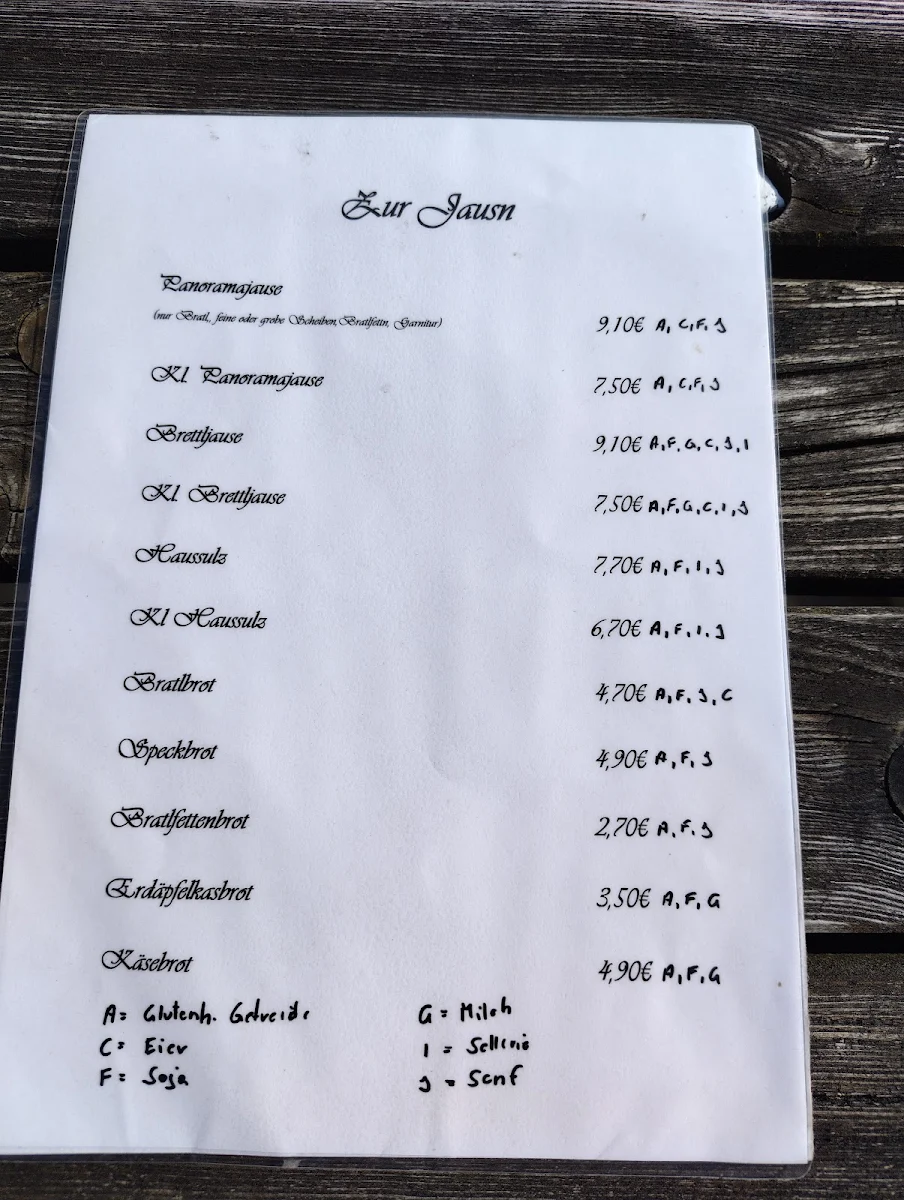 Zur Jausn
Panoramajause
(nur Bratl, feine oder grobe Scheiben, Bratlfettn, Garnitur) 9,10€ A, C, F, J
Kl. Panoramajause 7,50€ A, C, F, J
Brettljause 9,10€ A, F, G, C, J, I
Kl. Brettljause 7,50€ A, F, G, C, I, J
Haussulz 7,70€ A, F, I, J
Kl Haussulz 6,70€ A, F, I, J
Bratlbrot 4,70€ A, F, J, C
Speckbrot 4,90€ A, F, J
Bratlfettenbrot 2,70€ A, F, J
Erdäpfelkasbrot 3,50€ A, F, G
Käsebrot 4,90€ A, F, G
A = Glutenh. Getreide G = Milch
C = Eier I = Sellerie
F = Soja J = Senf